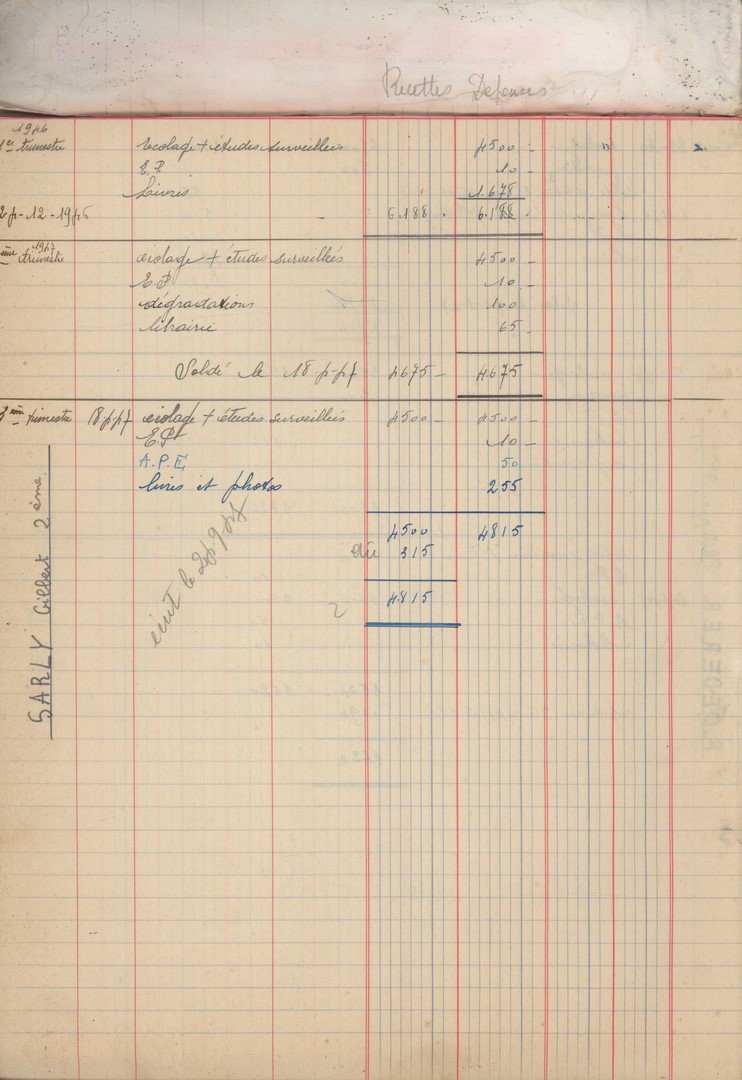 Recettes Depenses
1946
1er trimestre Ecolage + études surveillées 4500 -
E.P. 10 -
Livres 1.678
24-12-1946 6.188 . 6.188 .
1947
ème trimestre ecolage + études surveillées 4500 -
E.P 10 -
dégradations 100
librairie 65
Soldé le 18-4-47 4675 - 4675
3ème trimestre 18-4-47 ecolage + études surveillées 4500 - 4500 -
E.P 10 -
A.P.E 50
livres et photos 255
4500 4815
dû 315
écrit le
4815
SARLY Gilbert 2ème